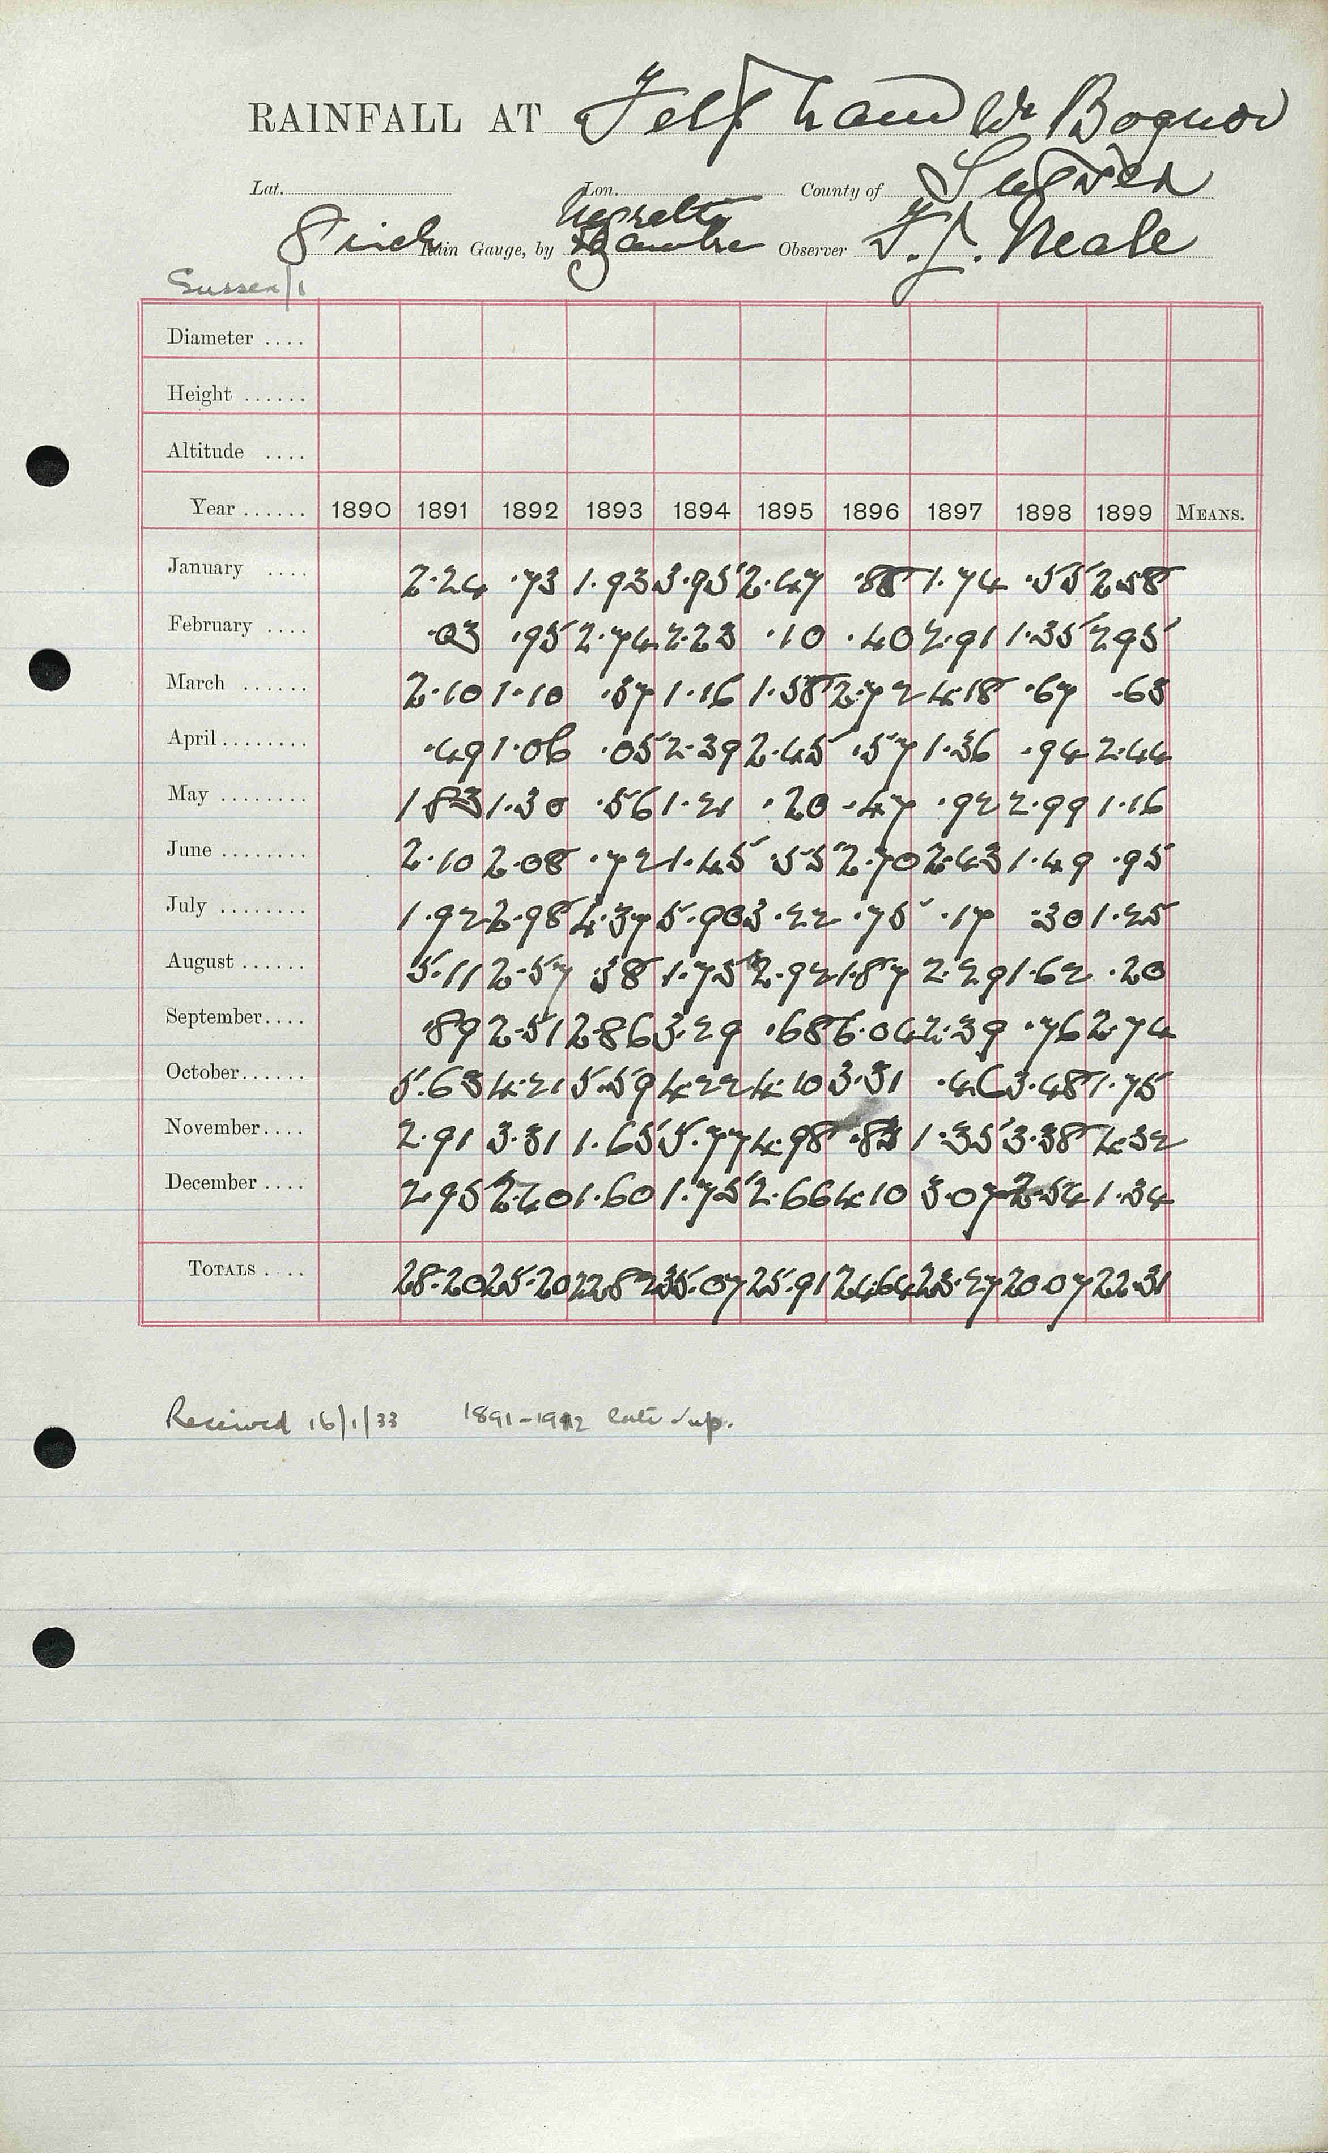 RAINFALL AT Felpham Nr Bognor
Lat. Lon. County of Sussex
8 inch Rain Gauge, by Negretti & Zambra Observer F. J. Neale
Sussex/1
Diameter ....
Height ......
Altitude ....
Year ...... 1890 1891 1892 1893 1894 1895 1896 1897 1898 1899 MEANS.
January .... 2.24 .73 1.93 3.95 2.47 .88 1.74 .55 2.58
February .... .03 .95 2.74 2.23 .10 .40 2.91 1.35 295
March ...... 2.10 1.10 .37 1.16 1.58 2.72 4.18 .67 .63
April ........ .49 1.06 .05 2.39 2.45 .57 1.36 .94 2.44
May ........ 183 1.30 .56 1.21 .20 .47 .92 2.99 1.16
June ........ 2.10 2.08 .72 1.45 .55 2.70 2.43 1.49 .95
July ........ 1.92 2.98 4.37 5.90 3.22 .75 .17 .30 1.25
August ...... 5.11 2.57 .38 1.75 2.92 1.87 2.29 1.62 .20
September .... .89 2.51 2.86 3.29 .68 6.04 2.39 .76 2.74
October ...... 5.63 4.21 5.59 4.22 4.10 3.31 .46 3.48 1.75
November .... 2.91 3.31 1.65 5.77 4.98 .83 1.35 3.38 4.32
December .... 2.95 2.40 1.60 1.75 2.66 4.10 3.07 2.54 1.34
TOTALS .... 28.20 25.20 2282 35.07 25.91 24.64 23.27 20.07 22.31
Received 16/1/33 1891-1912